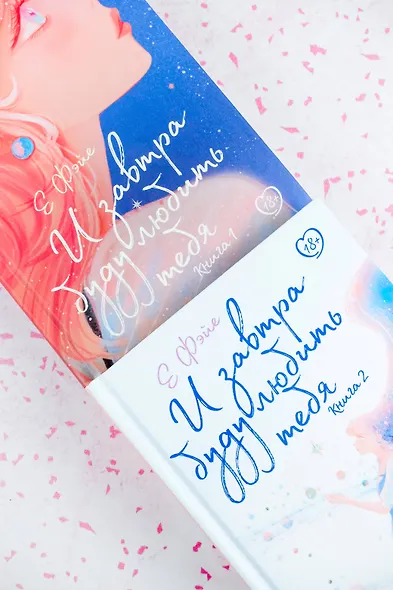 Е Фэйе
И завтра
буду любить
тебя
Книга 1
18+
Е Фэйе
И завтра
буду любить
тебя
Книга 2
18+